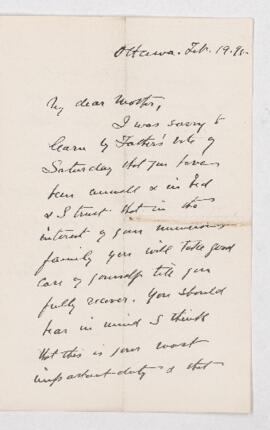 Ottawa. Feb. 19.
My dear Mother,
I was sorry to
learn by Father's note of
Saturday that you have
been unwell & in bed
& I trust that in the
interest of your numerous
family you will take good
care of yourself till you
fully recover. You should
bear in mind I think
that this is your most
important duty & that